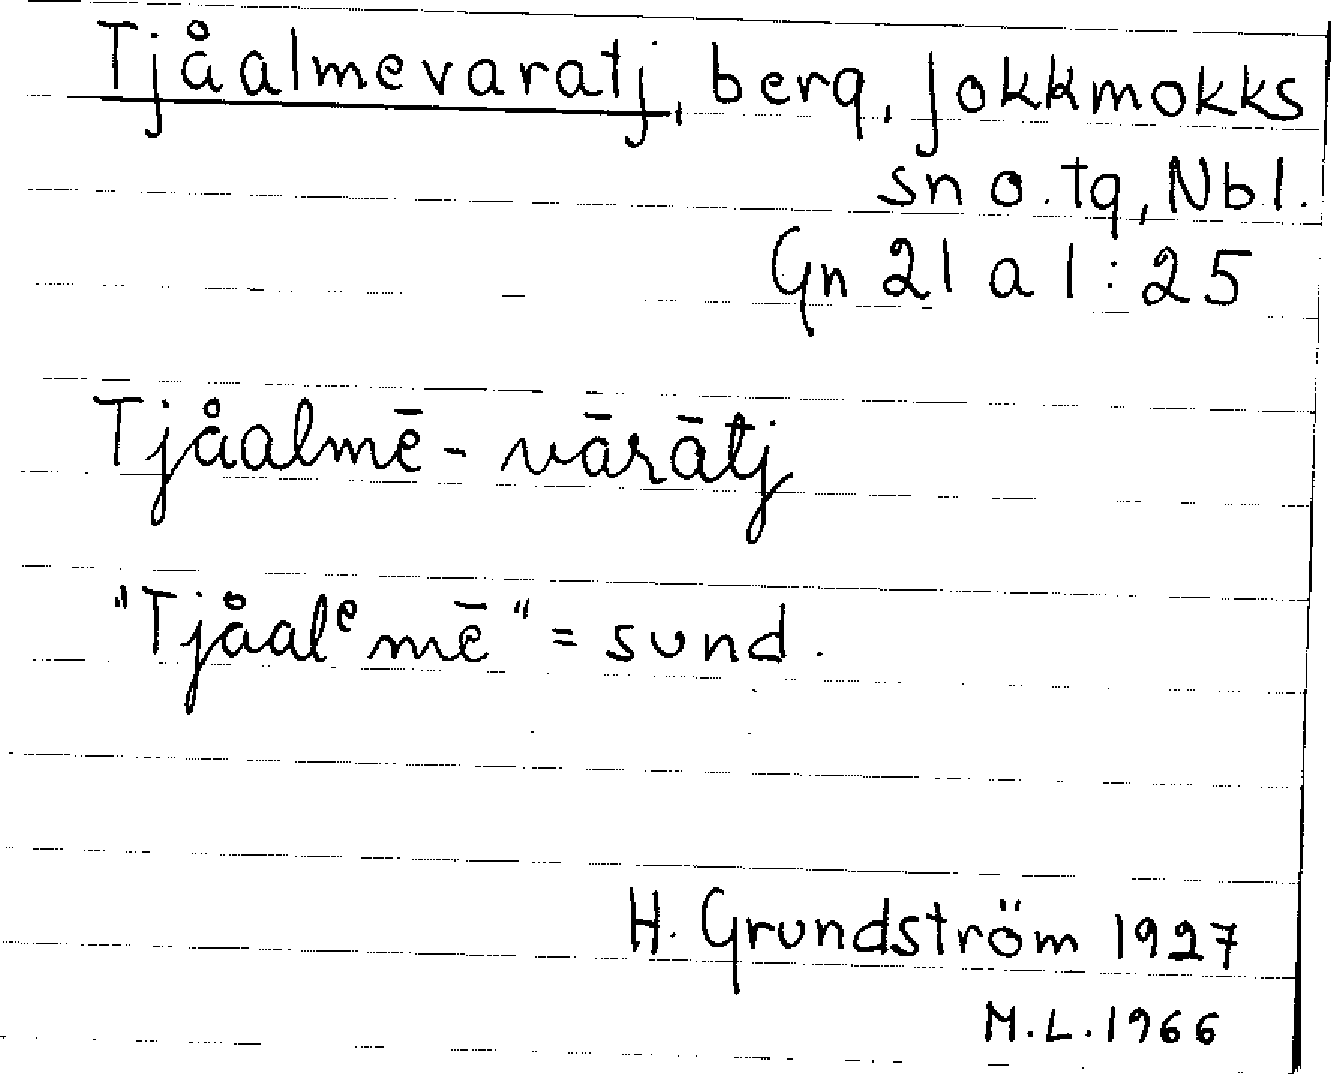 Tjåalmevaratj, berg, Jokkmokks
sn o. tg, Nbl.
Gn 21 a 1:25
Tjåalmē-vārātj
"Tjåalᵉmē" = sund.
H. Grundström 1927
M.L.1966